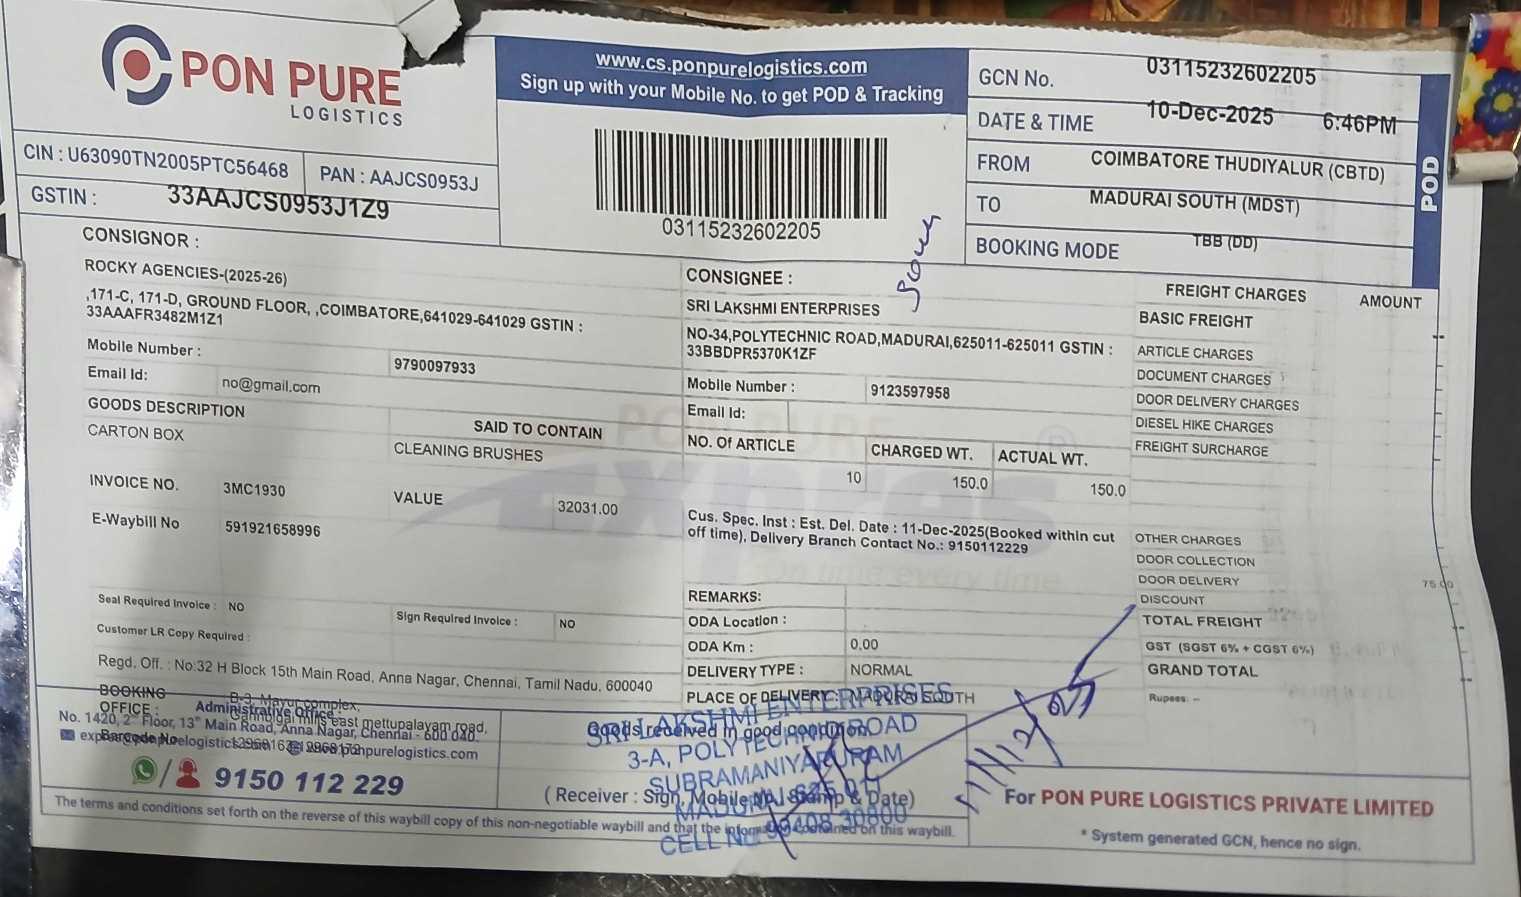 PON PURE
LOGISTICS
www.cs.ponpurelogistics.com
Sign up with your Mobile No. to get POD & Tracking
03115232602205
GCN No. 03115232602205
DATE & TIME 10-Dec-2025 6:46PM
FROM COIMBATORE THUDIYALUR (CBTD)
TO MADURAI SOUTH (MDST)
BOOKING MODE TBB (DD)
POD
CIN : U63090TN2005PTC56468 PAN : AAJCS0953J
GSTIN : 33AAJCS0953J1Z9
CONSIGNOR :
ROCKY AGENCIES-(2025-26)
,171-C, 171-D, GROUND FLOOR, ,COIMBATORE,641029-641029 GSTIN :
33AAAFR3482M1Z1
Mobile Number : 9790097933
Email Id: no@gmail.com
GOODS DESCRIPTION SAID TO CONTAIN
CARTON BOX CLEANING BRUSHES
INVOICE NO. 3MC1930 VALUE 32031.00
E-Waybill No 591921658996
Seal Required Invoice : NO Sign Required Invoice : NO
Customer LR Copy Required :
Regd. Off. : No:32 H Block 15th Main Road, Anna Nagar, Chennai, Tamil Nadu, 600040
CONSIGNEE :
SRI LAKSHMI ENTERPRISES
NO-34,POLYTECHNIC ROAD,MADURAI,625011-625011 GSTIN :
33BBDPR5370K1ZF
Mobile Number : 9123597958
Email Id:
NO. Of ARTICLE CHARGED WT. ACTUAL WT.
10 150.0 150.0
Cus. Spec. Inst : Est. Del. Date : 11-Dec-2025(Booked within cut
off time), Delivery Branch Contact No.: 9150112229
REMARKS:
ODA Location :
ODA Km : 0.00
DELIVERY TYPE : NORMAL
PLACE OF DELIVERY : MADURAI SOUTH
FREIGHT CHARGES AMOUNT
BASIC FREIGHT
ARTICLE CHARGES
DOCUMENT CHARGES
DOOR DELIVERY CHARGES
DIESEL HIKE CHARGES
FREIGHT SURCHARGE
OTHER CHARGES
DOOR COLLECTION
DOOR DELIVERY 75.00
DISCOUNT
TOTAL FREIGHT
GST (SGST 6% + CGST 6%)
GRAND TOTAL
Rupees: --
BOOKING
OFFICE :
B-3, Mayur complex,
Administrative Office :
No. 1420, 2nd Floor, 13th Main Road, Anna Nagar, Chennai - 600 040.
Barcode No
9150 112 229
Goods received in good condition
(Receiver : Sign, Mobile No., Stamp & Date)
SRI LAKSHMI ENTERPRISES
3-A, POLYTECHNIC ROAD
SUBRAMANIYAPURAM
MADURAI
CELL NO
11/12/2025
The terms and conditions set forth on the reverse of this waybill copy of this non-negotiable waybill and that the information contained on this waybill.
For PON PURE LOGISTICS PRIVATE LIMITED
* System generated GCN, hence no sign.